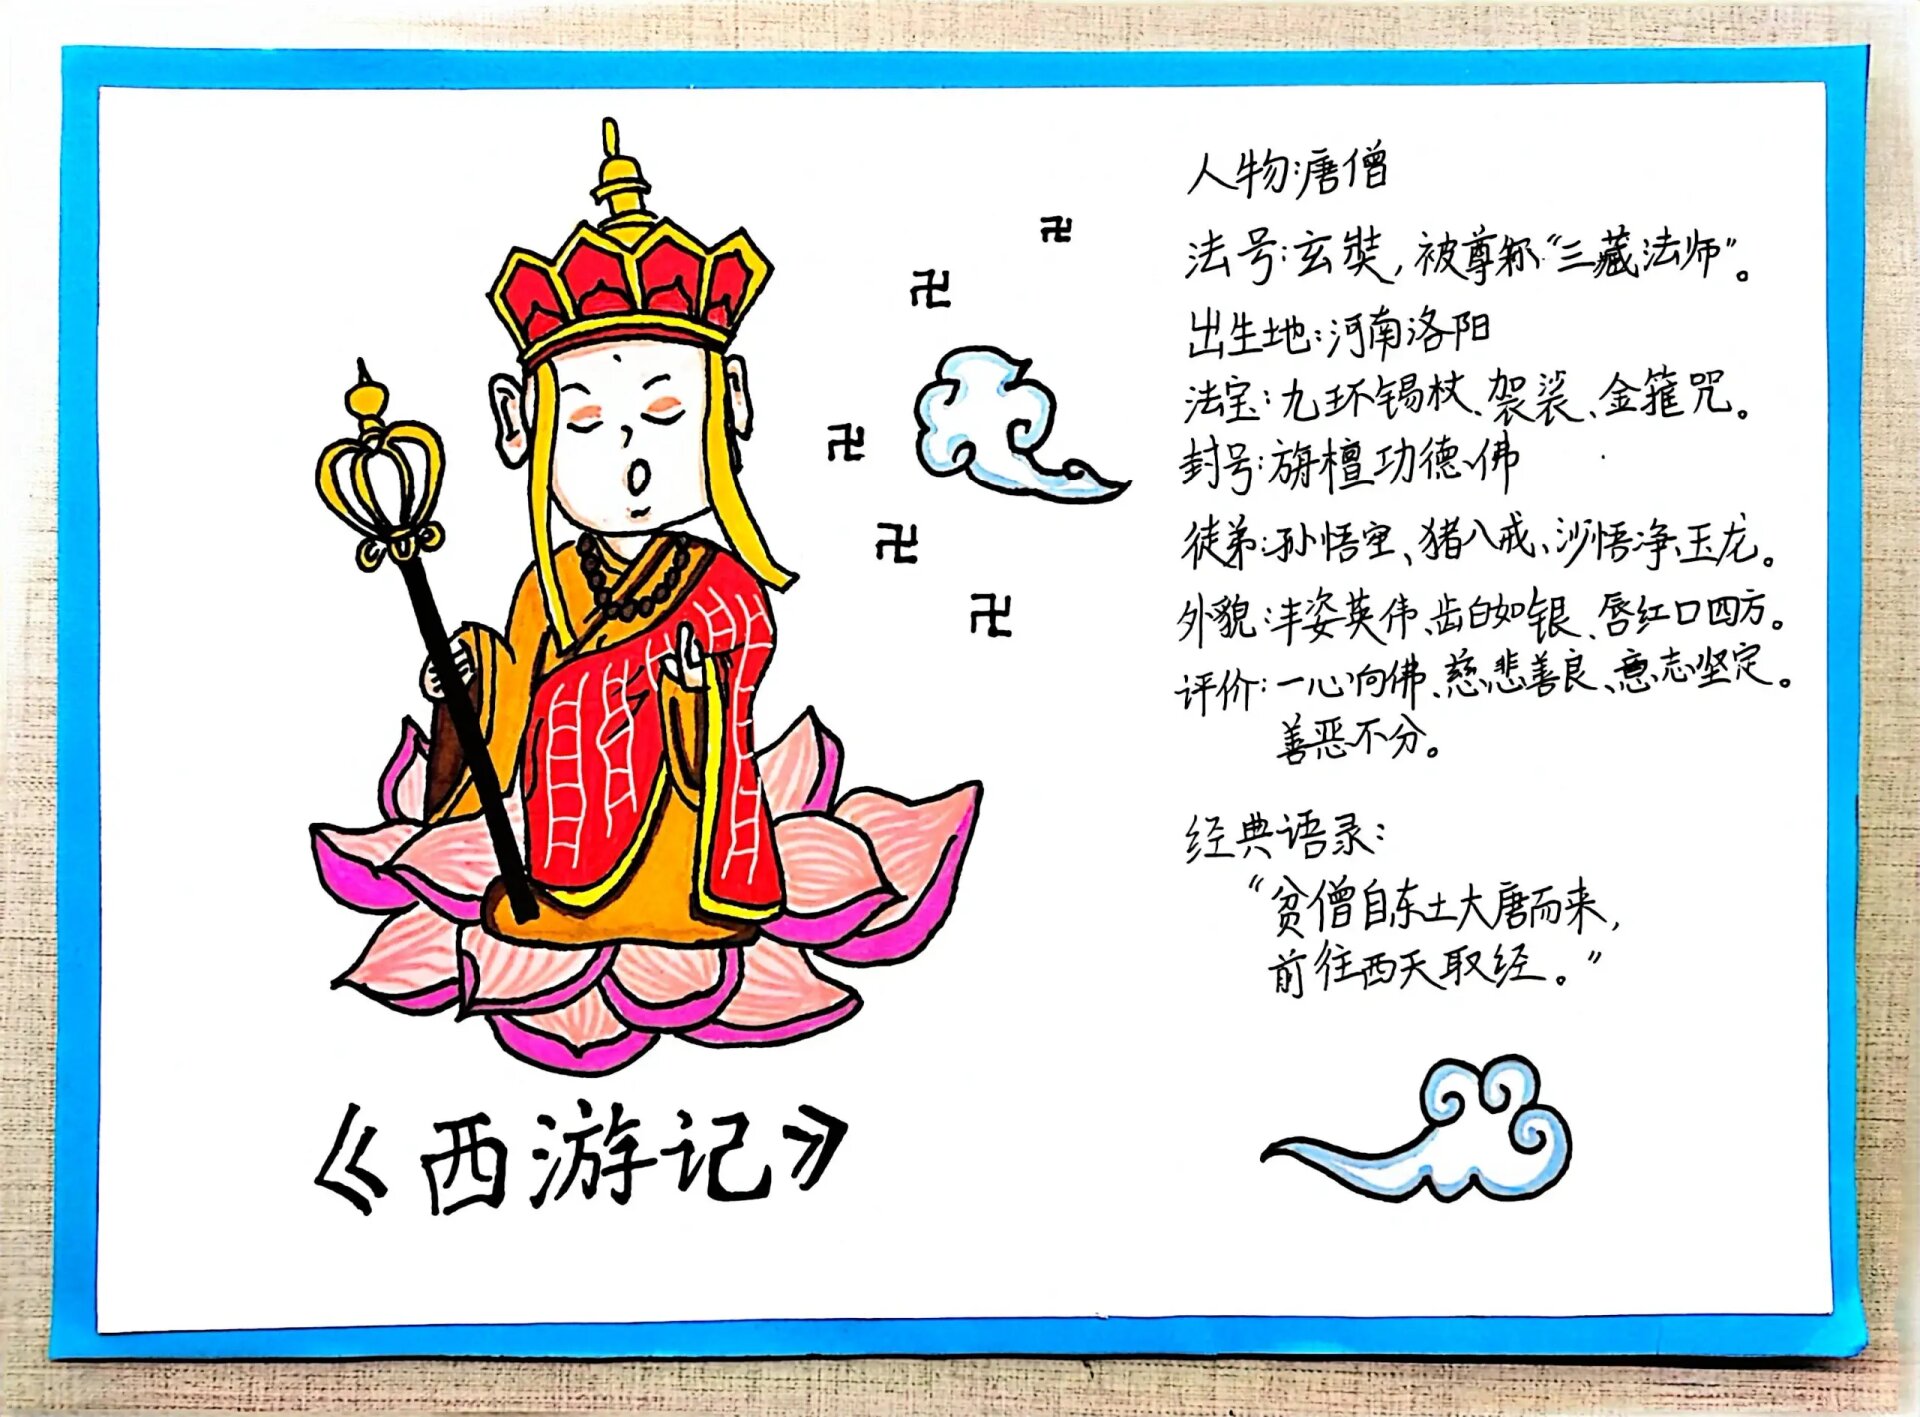 人物:唐僧
法号:玄奘,被尊称“三藏法师”。
出生地:河南洛阳
法宝:九环锡杖、袈裟、金箍咒。
封号:旃檀功德佛
徒弟:孙悟空、猪八戒、沙悟净、玉龙。
外貌:丰姿英伟、齿白如银、唇红口四方。
评价:一心向佛、慈悲善良、意志坚定。
善恶不分。
经典语录:
“贫僧自东土大唐而来,
前往西天取经。”
卍
卍
卍
卍
卍
《西游记》